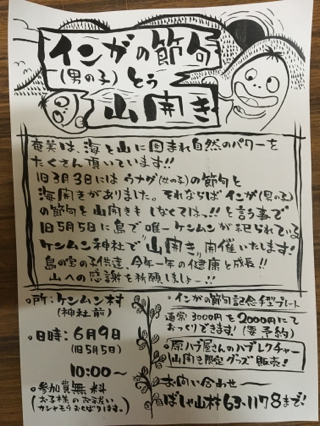 インガの節句
(男の子)とぅ
山開き
奄美は、海と山に囲まれ自然のパワーを
たくさん頂いています!!
旧3月3日にはウナグ(女の子)の節句と
海開きがありました。それならばインガ(男の子)
の節句を山開きもしなくてはっ!!と言う事で
旧5月5日に島で唯一ケンムンが祀られている
ケンムン神社で"山開き"開催いたします!
島の宝の子供達、今年一年の健康と成長!!
山への感謝を祈願しましょー!!
・所:ケンムン村
(神社前)
・日時:6月9日
(旧5月5日)
10:00〜
・参加費無料
・インガの節句記念手型プレート
通常3000円を2000円にて
おつくりできます!(要予約)
・原ハブ屋さんのハブレクチャー
山開き限定グッズ販売!!
お問い合わせ
ばしゃ山村63-1178まで!